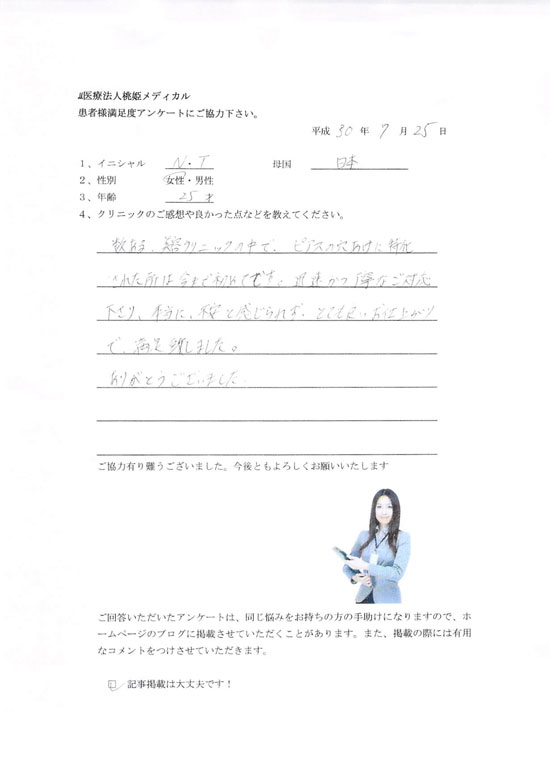 医療法人桃姫メディカル
患者様満足度アンケートにご協力下さい。
平成 30 年 7 月 25 日
1、イニシャル N・T 母国 日本
2、性別 女性・男性
3、年齢 25才
4、クリニックのご感想や良かった点などを教えてください。
数ある、美容クリニックの中で、ピアスの穴あけに特化
された所は今まで初めてです。迅速かつ丁寧なご対応
下さり、本当に、不安と感じられず、とても良い仕上がり
で、満足致しました。
ありがとうございました。
ご協力有り難うございました。今後ともよろしくお願いいたします
ご回答いただいたアンケートは、同じ悩みをお持ちの方の手助けになりますので、ホ
ームページのブログに掲載させていただくことがあります。また、掲載の際には有用
なコメントをつけさせていただきます。
記事掲載は大丈夫です！